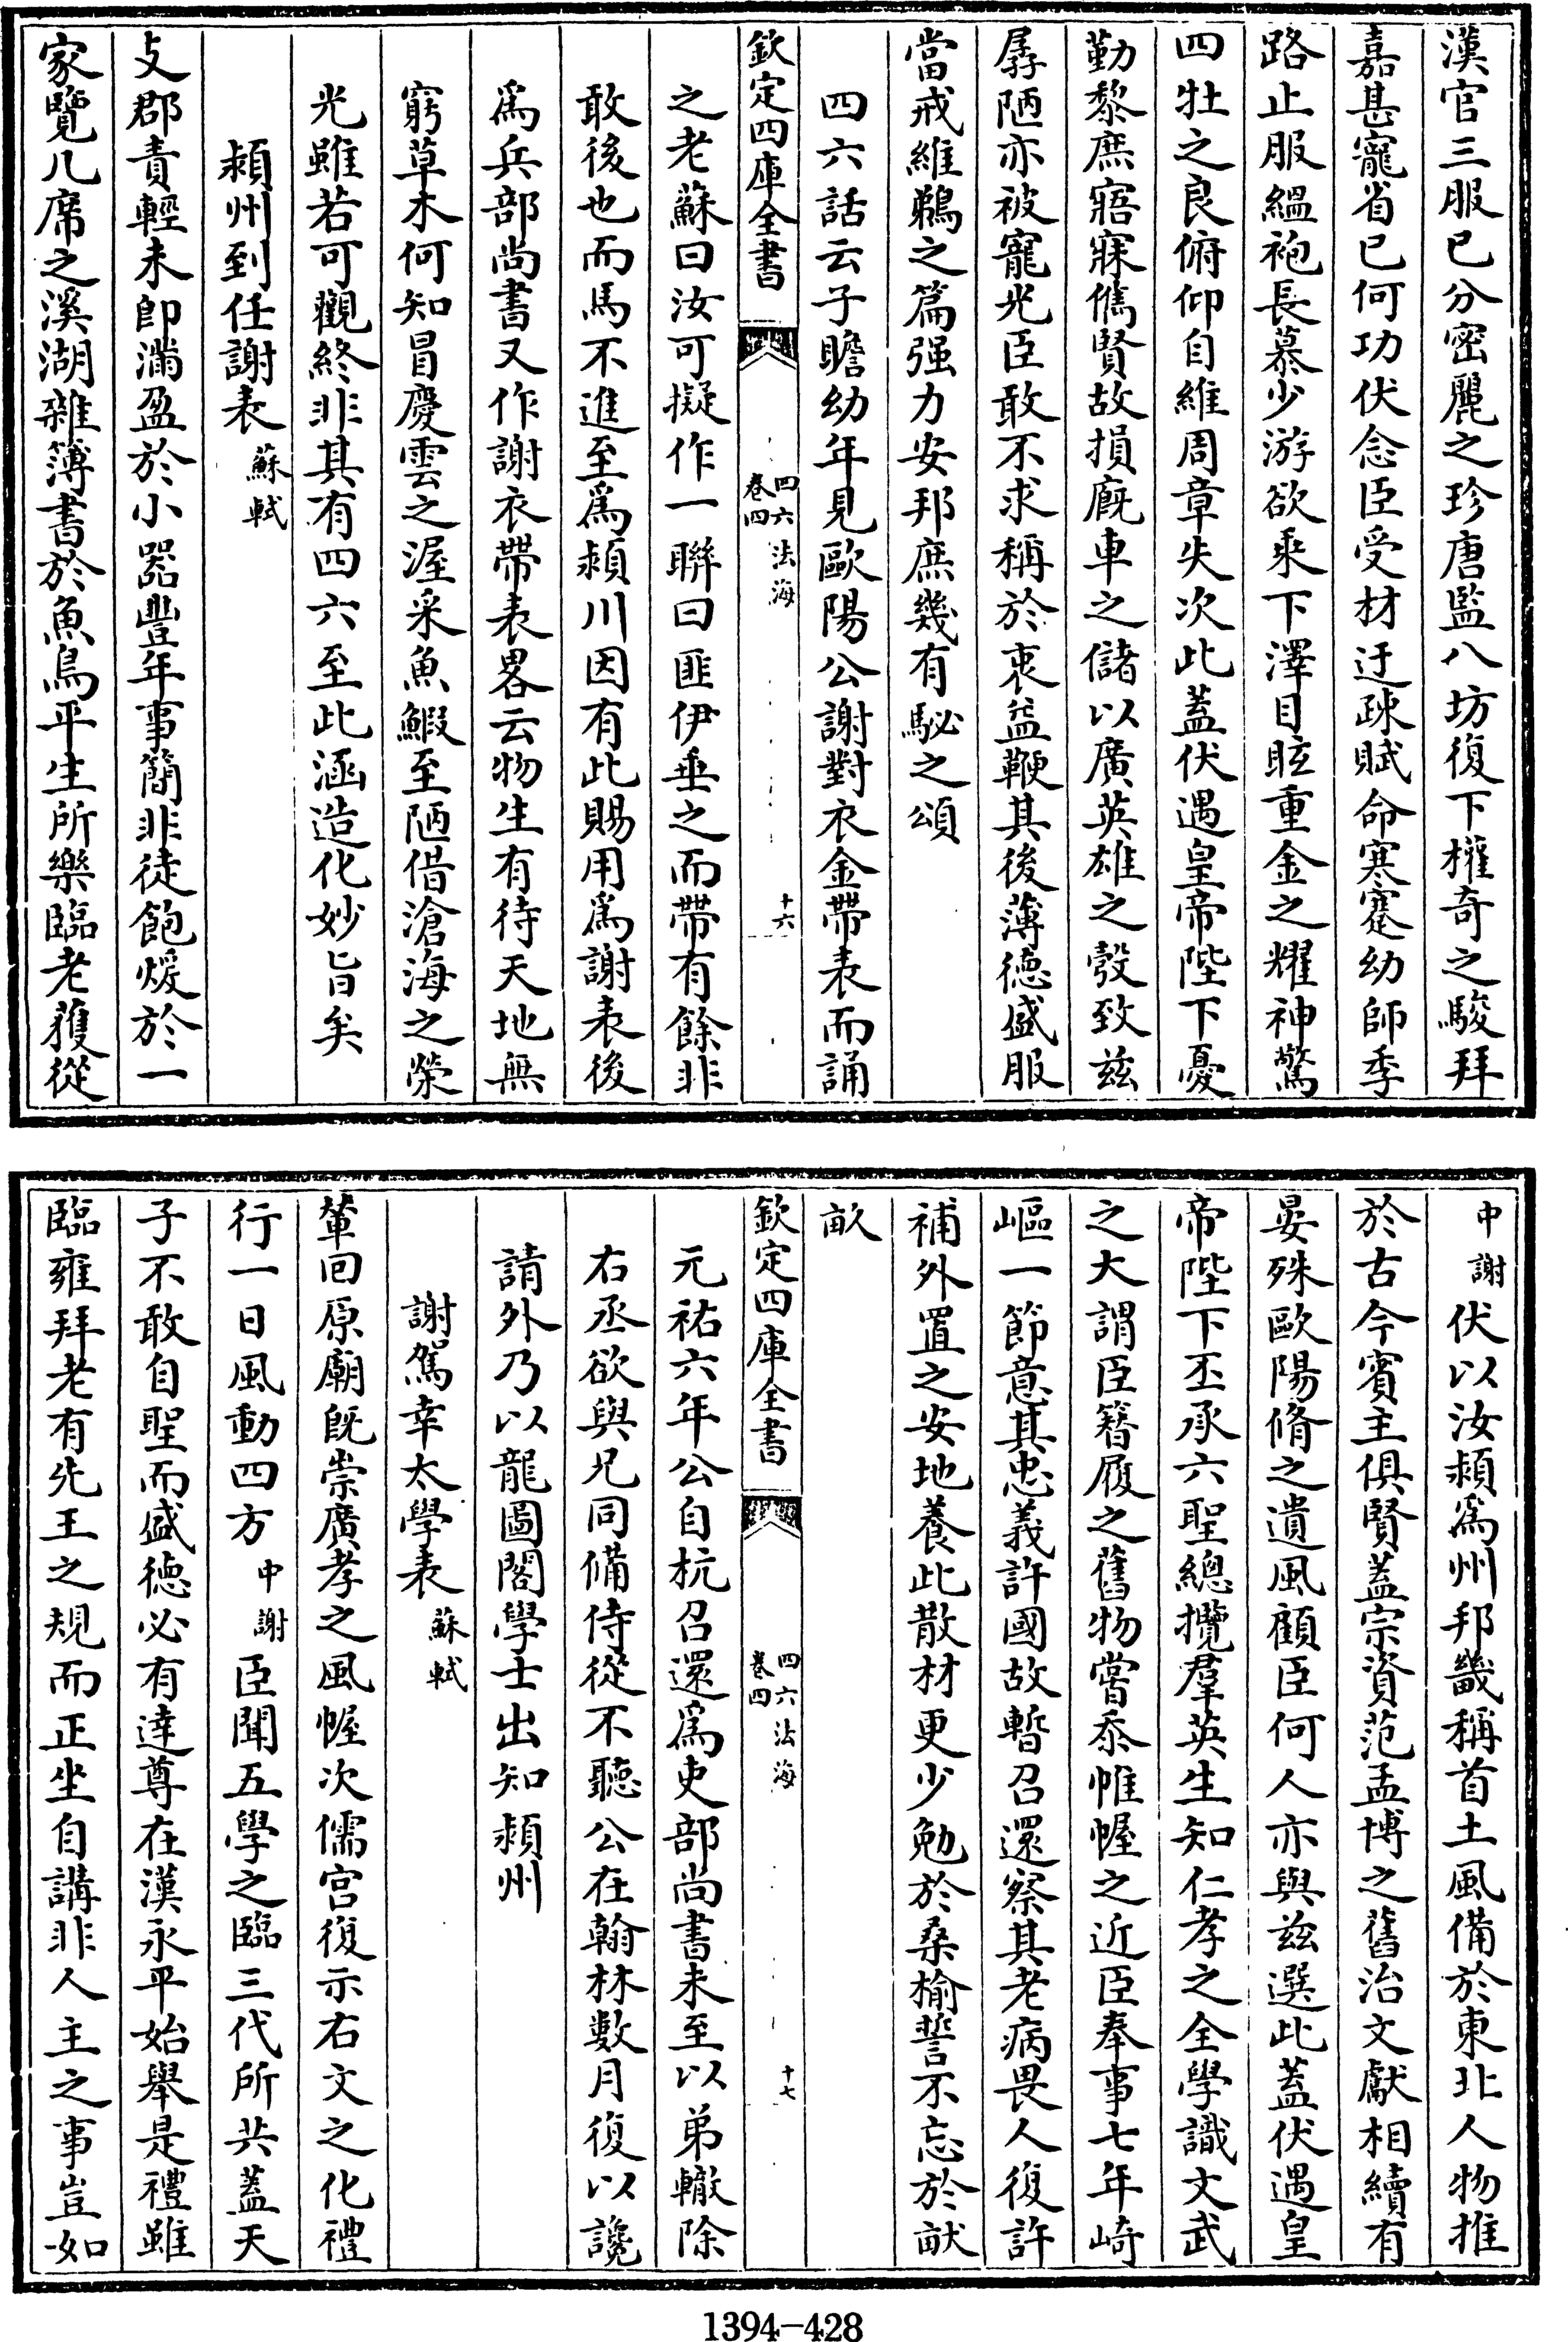 漢官三服已分密麗之珍唐監八坊復下權奇之駿拜
嘉甚寵省已何功伏念臣受材迂疎賦命寒蹇幼師季
路止服緼袍長慕少游欲乘下澤目眩重金之耀神驚
四牡之良俯仰自維周章失次此蓋伏遇皇帝陛下憂
勤黎庶寤寐儁賢故損廐車之儲以廣英雄之彀致兹
孱陋亦被寵光臣敢不求稱於衷益鞭其後薄德盛服
當戒維鵜之篇强力安邦庶幾有駜之頌
四六話云子瞻幼年見歐陽公謝對衣金帶表而誦
欽定四庫全書
四六法海
卷四
十六
之老蘇曰汝可擬作一聯曰匪伊垂之而帶有餘非
敢後也而馬不進至爲潁川因有此賜用爲謝表後
爲兵部尚書又作謝衣帶表畧云物生有待天地無
窮草木何知冒慶雲之渥采魚鰕至陋借滄海之榮
光雖若可觀終非其有四六至此涵造化妙旨矣
潁州到任謝表 蘇軾
支郡責輕未即滿盈於小器豐年事簡非徒飽煖於一
家覽几席之溪湖雜簿書於魚鳥平生所樂臨老獲從
中謝 伏以汝潁爲州邦畿稱首土風備於東北人物推
於古今賓主俱賢蓋宗資范孟博之舊治文獻相續有
晏殊歐陽脩之遺風顧臣何人亦與兹選此蓋伏遇皇
帝陛下丕承六聖總攬羣英生知仁孝之全學識文武
之大謂臣簪履之舊物嘗忝帷幄之近臣奉事七年崎
嶇一節意其忠義許國故暫召還察其老病畏人復許
補外置之安地養此散材更少勉於桑榆誓不忘於畎
畝
欽定四庫全書
四六法海
卷四
十七
元祐六年公自杭召還爲吏部尚書未至以弟轍除
右丞欲與兄同備侍從不聽公在翰林數月復以讒
請外乃以龍圖閣學士出知潁州
謝駕幸太學表 蘇軾
輦回原廟旣崇廣孝之風幄次儒宮復示右文之化禮
行一日風動四方 中謝 臣聞五學之臨三代所共蓋天
子不敢自聖而盛德必有達尊在漢永平始舉是禮雖
臨雍拜老有先王之規而正坐自講非人主之事豈如
1394-428